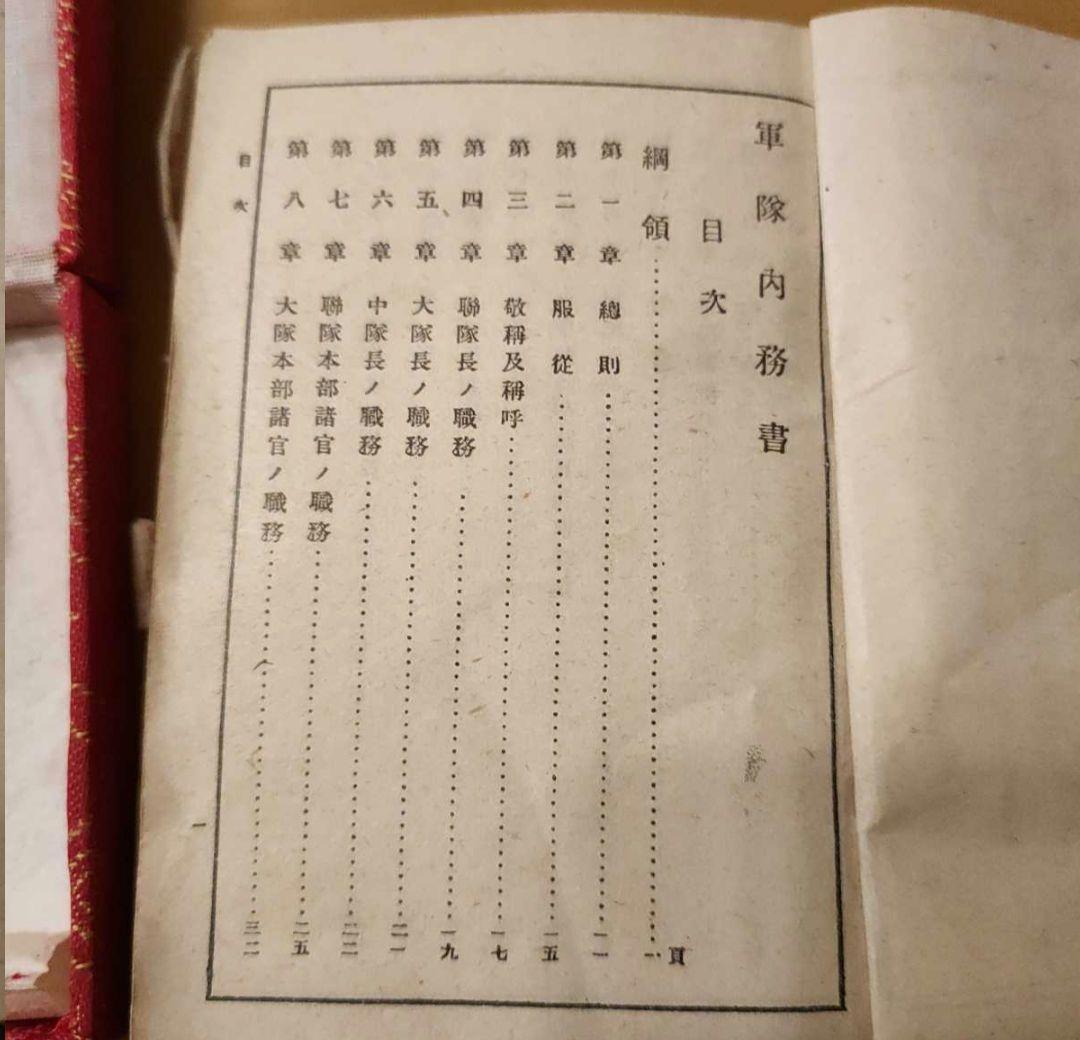 軍隊內務書
目次
頁
綱領……一
第一章 總則……一一
第二章 服從……一五
第三章 敬稱及稱呼……一七
第四章 聯隊長ノ職務……一九
第五章 大隊長ノ職務……二一
第六章 中隊長ノ職務……二二
第七章 聯隊本部諸官ノ職務……二五
第八章 大隊本部諸官ノ職務……三二
目次
一